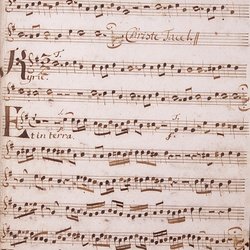 Christe Tacet
Kyrie
Et in terra